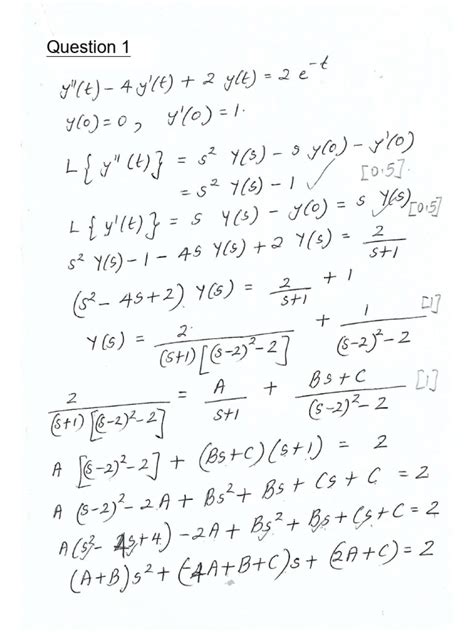 Question 1
y''(t) - 4y'(t) + 2 y(t) = 2 e^{-t}
y(0) = 0, y'(0) = 1.
L{y''(t)} = s² Y(s) - s y(0) - y'(0)
= s² Y(s) - 1 ✓ [0.5]
L{y'(t)} = s Y(s) - y(0) = s Y(s) [0.5]
s² Y(s) - 1 - 4s Y(s) + 2 Y(s) = 2/(s+1)
(s² - 4s + 2) Y(s) = 2/(s+1) + 1
Y(s) = 2/((s+1)[(s-2)² - 2]) + 1/((s-2)² - 2) [1]
2/((s+1)[(s-2)² - 2]) = A/(s+1) + (Bs + C)/((s-2)² - 2) [1]
A [(s-2)² - 2] + (Bs + C)(s+1) = 2
A (s-2)² - 2A + Bs² + Bs + Cs + C = 2
A(s² - 4s + 4) - 2A + Bs² + Bs + Cs + C = 2
(A+B)s² + (-4A + B + C)s + (2A + C) = 2